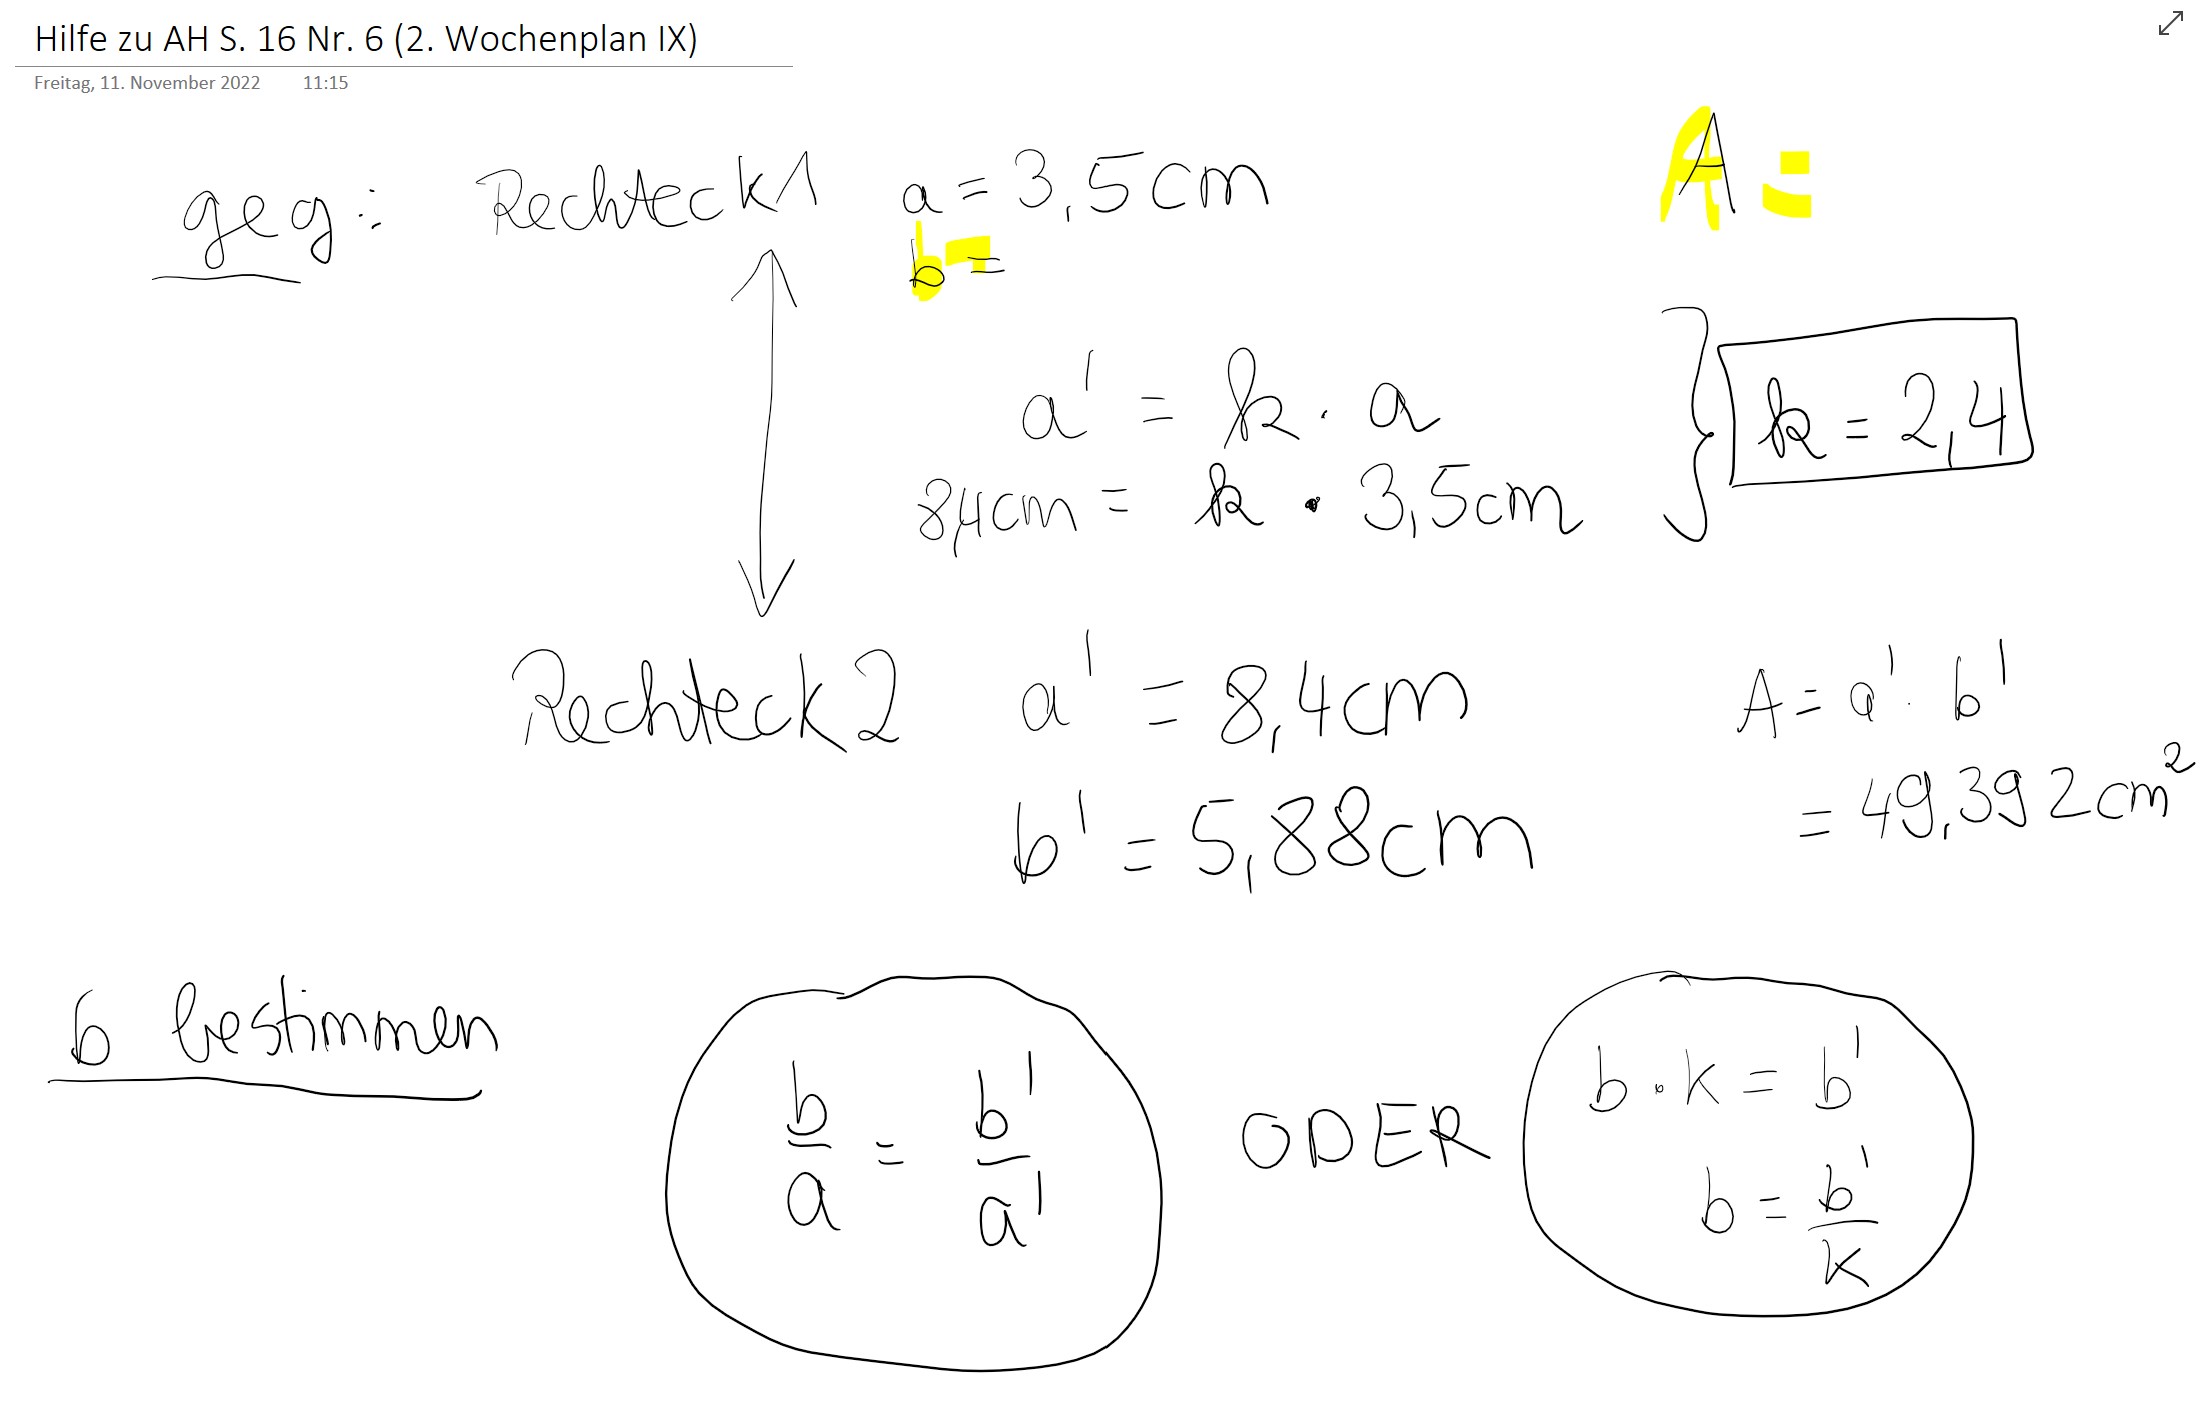 Hilfe zu AH S. 16 Nr. 6 (2. Wochenplan IX)
Freitag, 11. November 2022 11:15
geg: Rechteck 1 a = 3,5cm A =
b =
a' = k · a
k = 2,4
8,4cm = k · 3,5cm
Rechteck 2 a' = 8,4cm A = a' · b'
b' = 5,88cm = 49,392cm²
b bestimmen
b/a = b'/a' ODER b · k = b'
b = b'/k